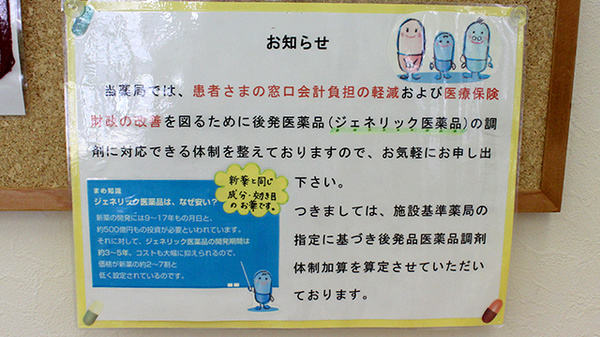 お知らせ
当薬局では、患者さまの窓口会計負担の軽減および医療保険
財政の改善を図るために後発医薬品(ジェネリック医薬品)の調
剤に対応できる体制を整えておりますので、お気軽にお申し出
下さい。
つきましては、施設基準薬局の
指定に基づき後発品医薬品調剤
体制加算を算定させていただい
ております。
新薬と同じ
成分・効き目
のお薬です。
まめ知識
ジェネリック医薬品は、なぜ安い?
新薬の開発には9〜17年もの月日と、
約500億円もの投資が必要といわれています。
それに対して、ジェネリック医薬品の開発期間は
約3〜5年、コストも大幅に抑えられるので、
価格が新薬の約2〜7割と
低く設定されているのです。